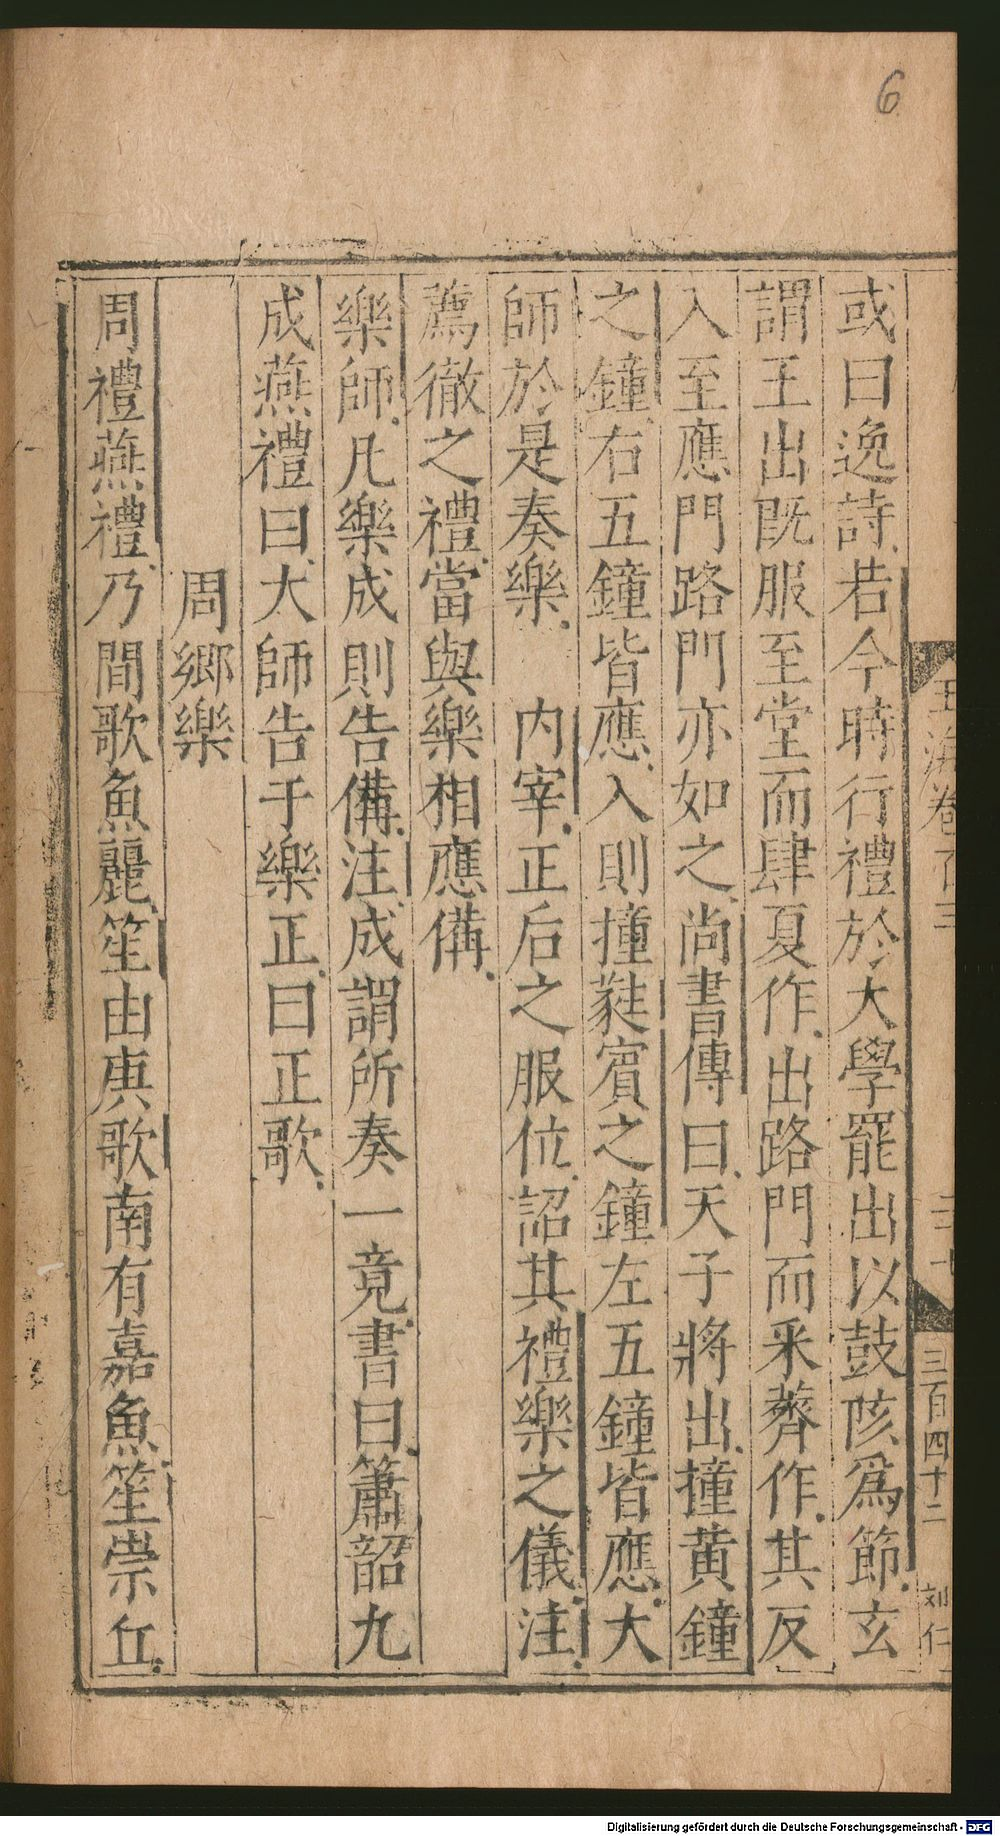 6
玉海卷百三
三百四十二
刘仁
或曰逸詩若今時行禮於大學罷出以鼓陔爲節玄
謂王出既服至堂而肆夏作出路門而采薺作其反
入至應門路門亦如之尚書傳曰天子將出撞黄鐘
之鐘右五鐘皆應入則撞蕤賓之鐘左五鐘皆應大
師於是奏樂　内宰正后之服位詔其禮樂之儀注
薦徹之禮當與樂相應備
樂師凡樂成則告備注成謂所奏一竟書曰簫韶九
成燕禮曰大師告于樂正曰正歌
周鄉樂
周禮燕禮乃間歌魚麗笙由庚歌南有嘉魚笙崇丘
Digitalisierung gefördert durch die Deutsche Forschungsgemeinschaft - DFG